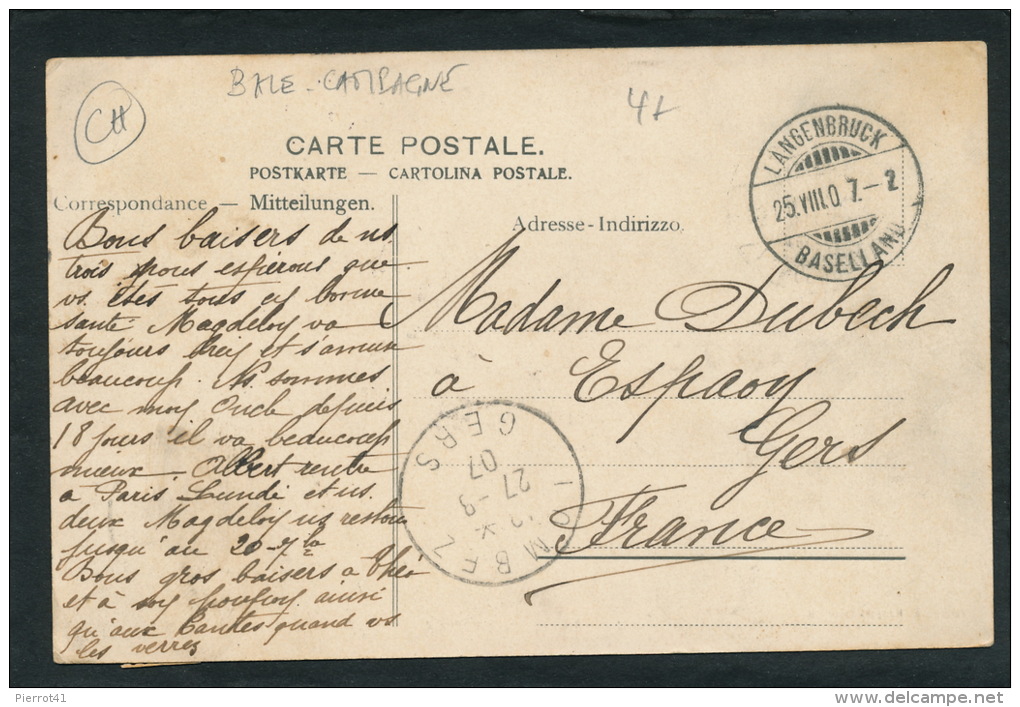 CH
BALE-CAMPAGNE
CARTE POSTALE.
POSTKARTE — CARTOLINA POSTALE.
Correspondance — Mitteilungen.
Adresse-Indirizzo.
LANGENBRUCK
25.VIII.07.-2
BASELLAND
Bons baisers de ns
trois nous espérons que
vs êtes tous en bonne
santé Magdelon va
toujours bien et s'amuse
beaucoup. Ns. sommes
avec mon Oncle depuis
18 jours il va beaucoup
mieux. Albert rentre
à Paris Lundi et ns.
deux Magdelon ns restons
jusqu'au 20-7bre
Bons gros baisers à Théo
et à son ainsi
qu'aux Tantes quand vs
les verrez
Madame Dubech
à Espaon
Gers
France
LOMBEZ
27-8
07
GERS
Pierrot41
delcampe.net